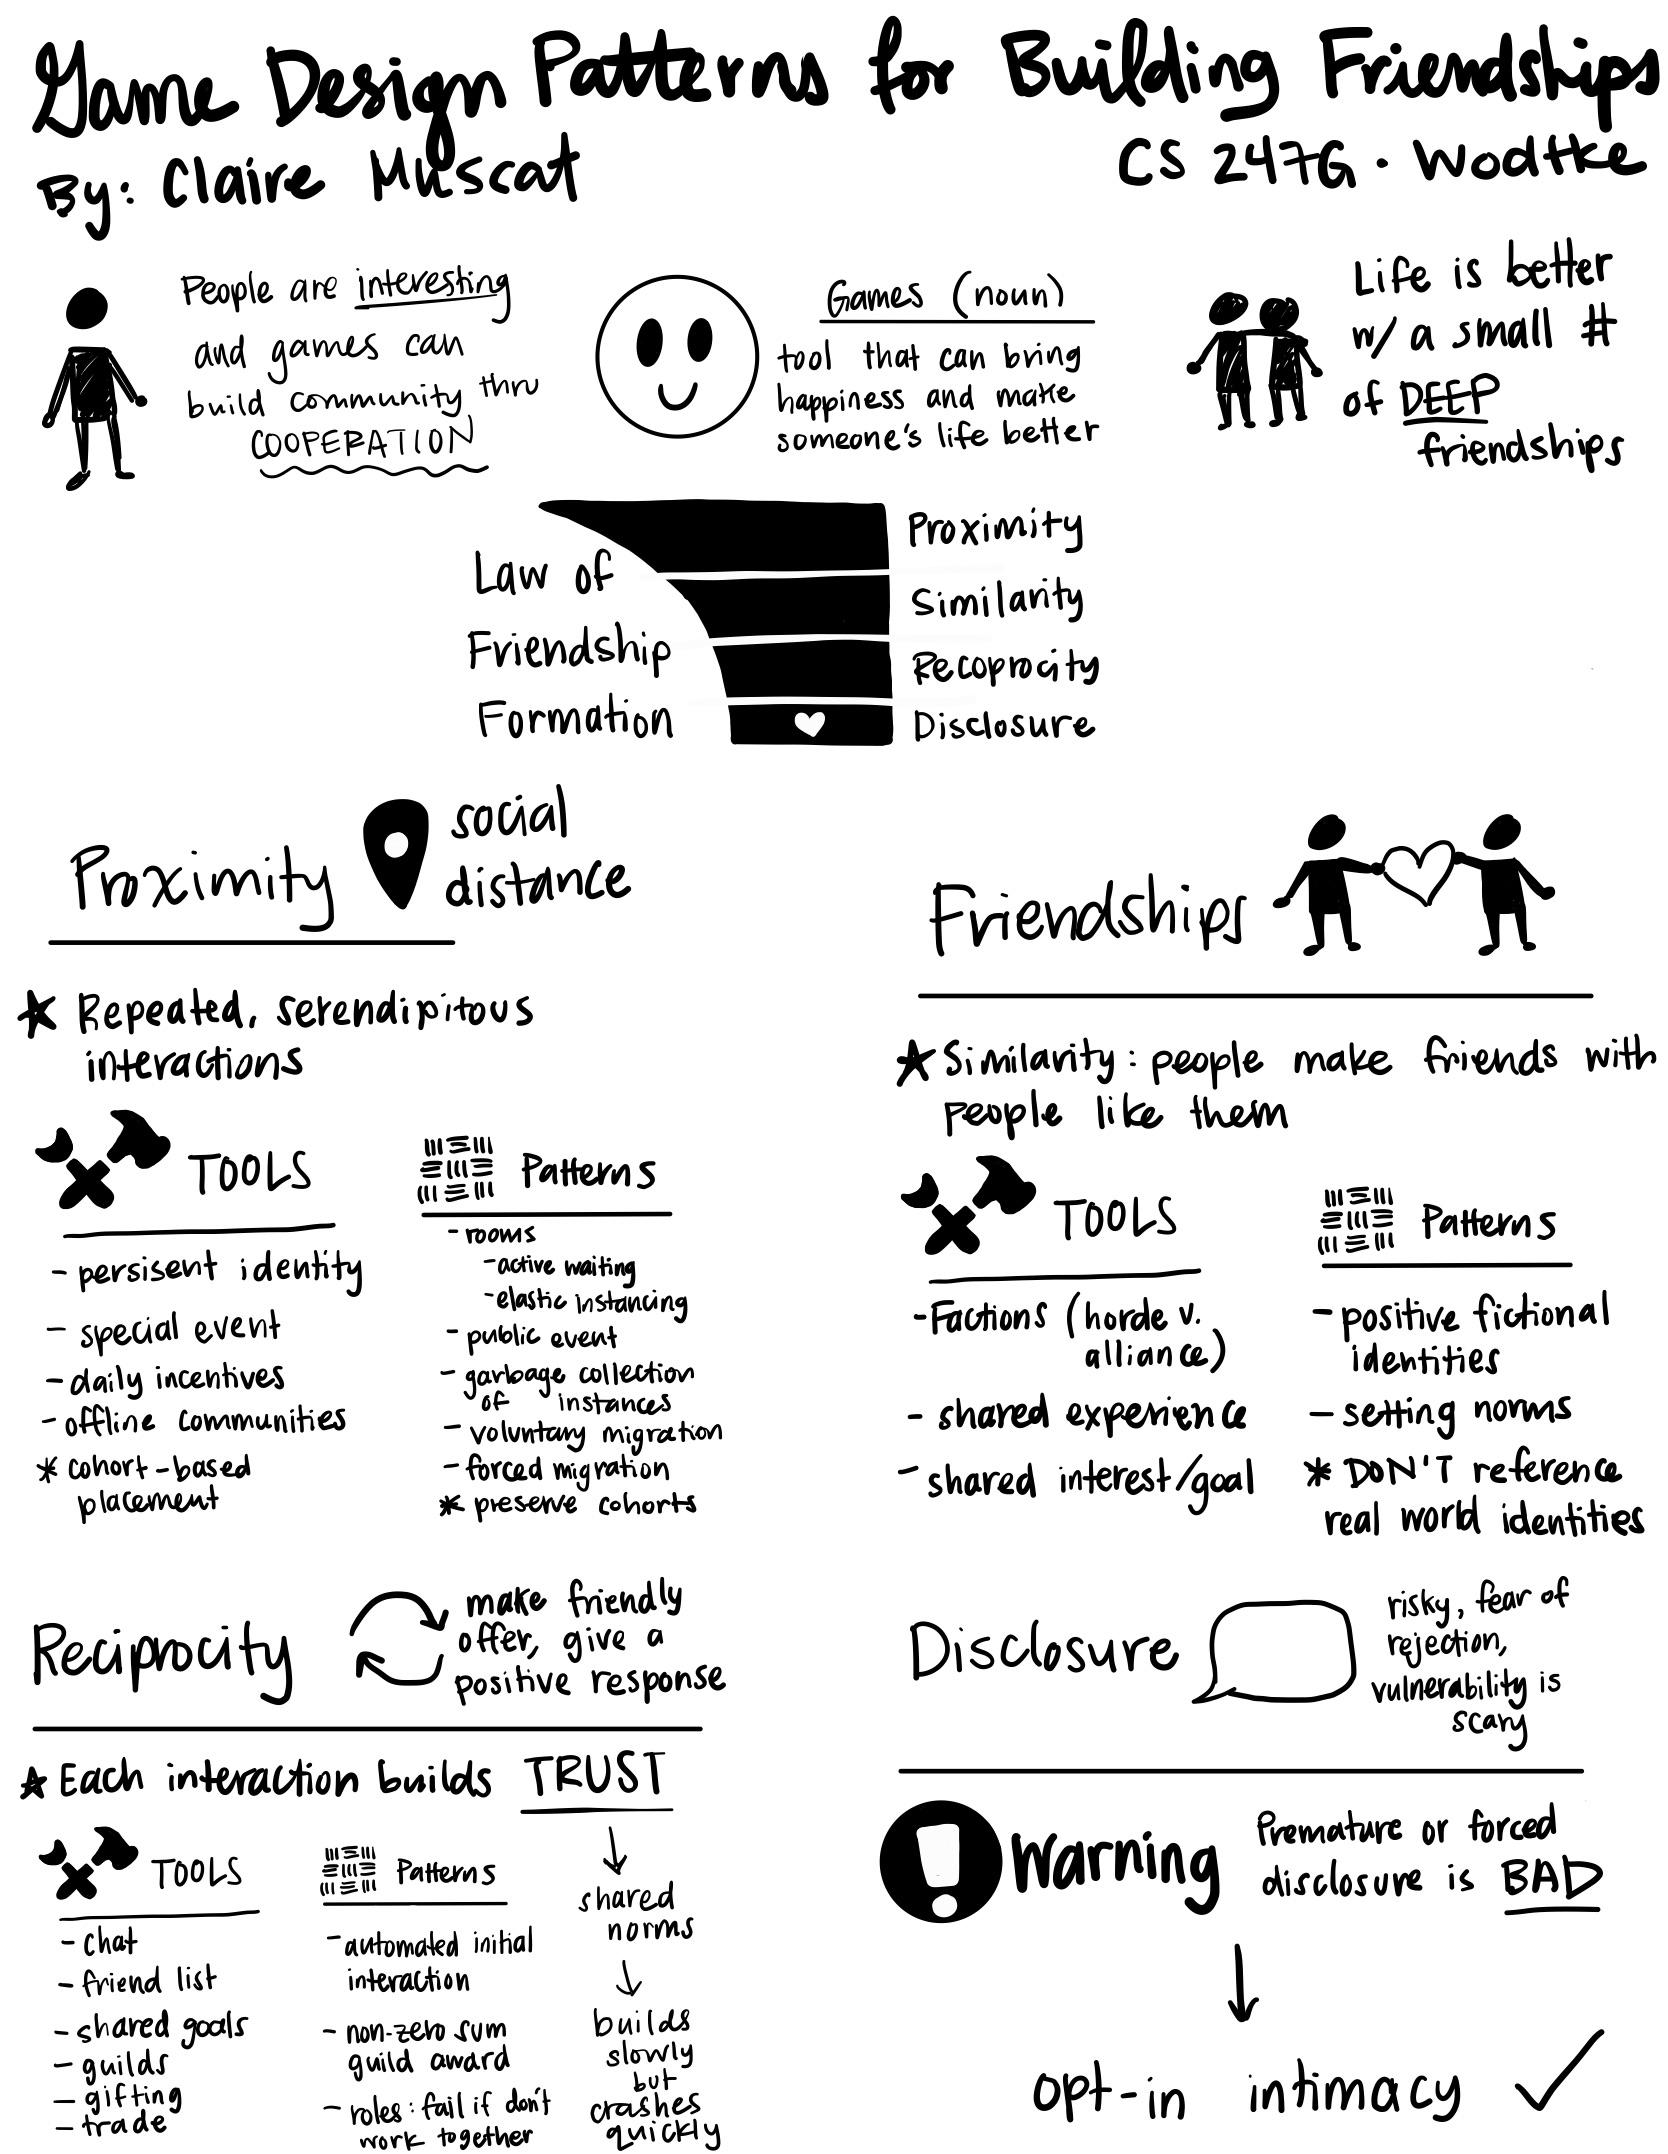 Game Design Patterns for Building Friendships
By: Claire Muscat
CS 247G · Wodtke
People are interesting
and games can
build community thru
COOPERATION
Games (noun)
tool that can bring
happiness and make
someone's life better
Life is better
w/ a small #
of DEEP
friendships
Law of
Friendship
Formation
Proximity
Similarity
Recoprocity
Disclosure
Proximity
social
distance
★ Repeated, serendipitous
interactions
TOOLS
- persisent identity
- special event
- daily incentives
- offline communities
* cohort-based
placement
Patterns
- rooms
- active waiting
- elastic instancing
- public event
- garbage collection
of instances
- voluntary migration
- forced migration
* preserve cohorts
Friendships
★ Similarity: people make friends with
people like them
TOOLS
- Factions (horde v.
alliance)
- shared experience
- shared interest/goal
Patterns
- positive fictional
identities
- setting norms
* DON'T reference
real world identities
Reciprocity
make friendly
offer, give a
positive response
★ Each interaction builds TRUST
TOOLS
- chat
- friend list
- shared goals
- guilds
- gifting
- trade
Patterns
- automated initial
interaction
- non-zero sum
guild award
- roles: fail if don't
work together
↓
shared
norms
↓
builds
slowly
but
crashes
quickly
Disclosure
risky, fear of
rejection,
vulnerability is
scary
! Warning
Premature or forced
disclosure is BAD
↓
opt-in intimacy ✓